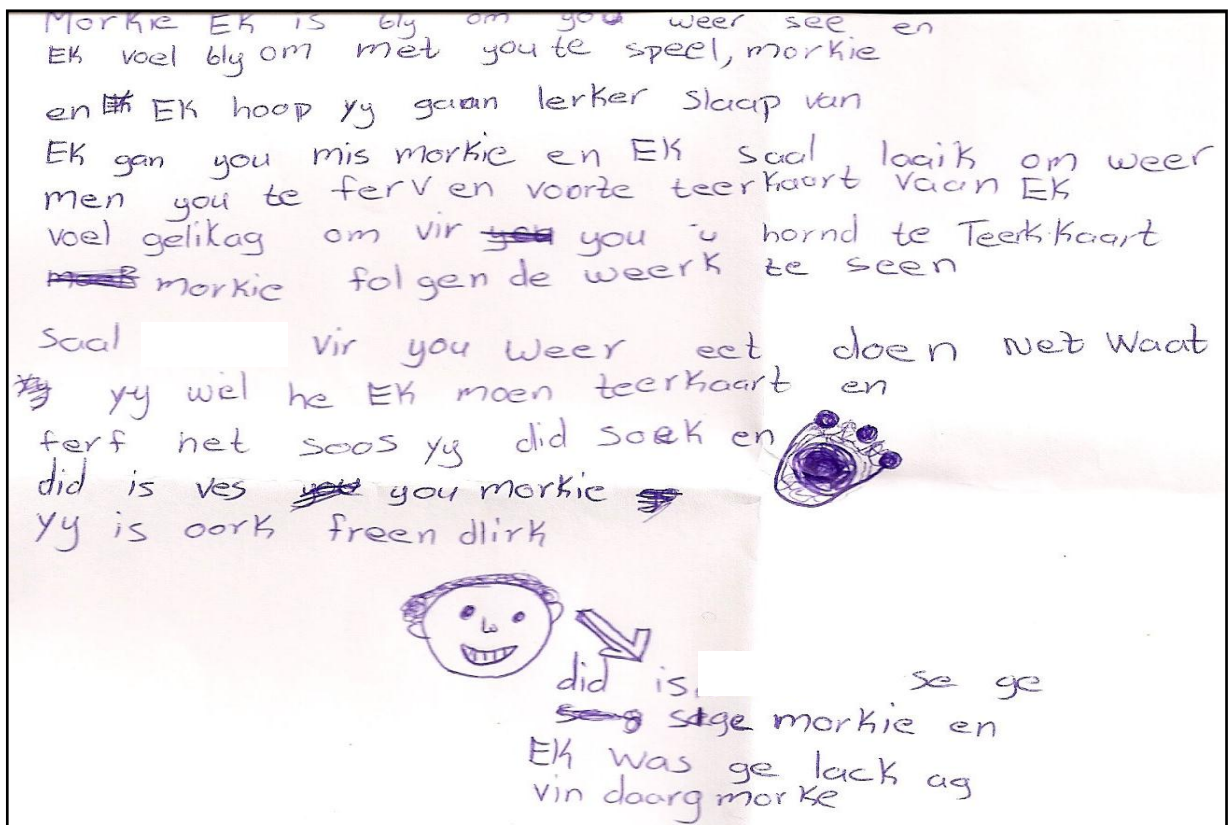 Morkie EK is bly om you weer see en
EK voel bly om met you te speel, morkie
en EK hoop yy gaan lerker slaap van
EK gan you mis morkie en EK saal laaik om weer
men you te ferv en voorte teerkaart vaan EK
voel gelikag om vir you u hornd te Teerkkaart
morkie folgen de weerk te seen
saal vir you weer eet doen net waat
yy wel he EK moen teerkaart en
ferf net soos yy did soek en
did is ves you morkie
yy is oork freen dlirk
did is se ge
stge morkie en
EK was ge lack ag
vin daarg morke